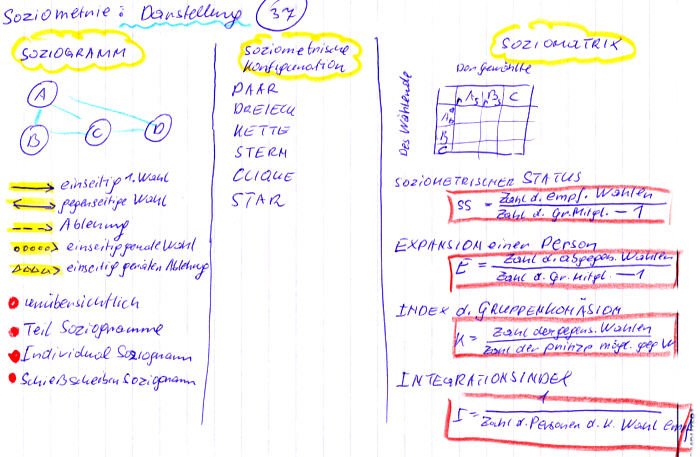 Soziometrie: Darstellung 37
SOZIOGRAMM
A
B C D
einseitig 1. Wahl
gegenseitige Wahl
Ablehnung
einseitig geniale Wahl
einseitig genialen Ablehnung
unübersichtlich
Teil Soziogramme
Individual Soziogramm
Schießscheiben Soziogramm
Soziometrische
Konfiguration
PAAR
DREIECK
KETTE
STERN
CLIQUE
STAR
SOZIOMATRIX
Der gewählte
Des Wählende
A B C
A
B
C
SOZIOMETRISCHER STATUS
SS = Zahl d. empf. Wahlen
Zahl d. Gr.Mitgl. - 1
EXPANSION einer Person
E = Zahl d. abgegeb. Wahlen
Zahl d. Gr. Mitgl. - 1
INDEX d. GRUPPENKOHÄSION
K = Zahl der gegens. Wahlen
Zahl der prinzip mögl. geg W
INTEGRATIONSINDEX
I = 1
Zahl d. Personen d. k. Wahl empf